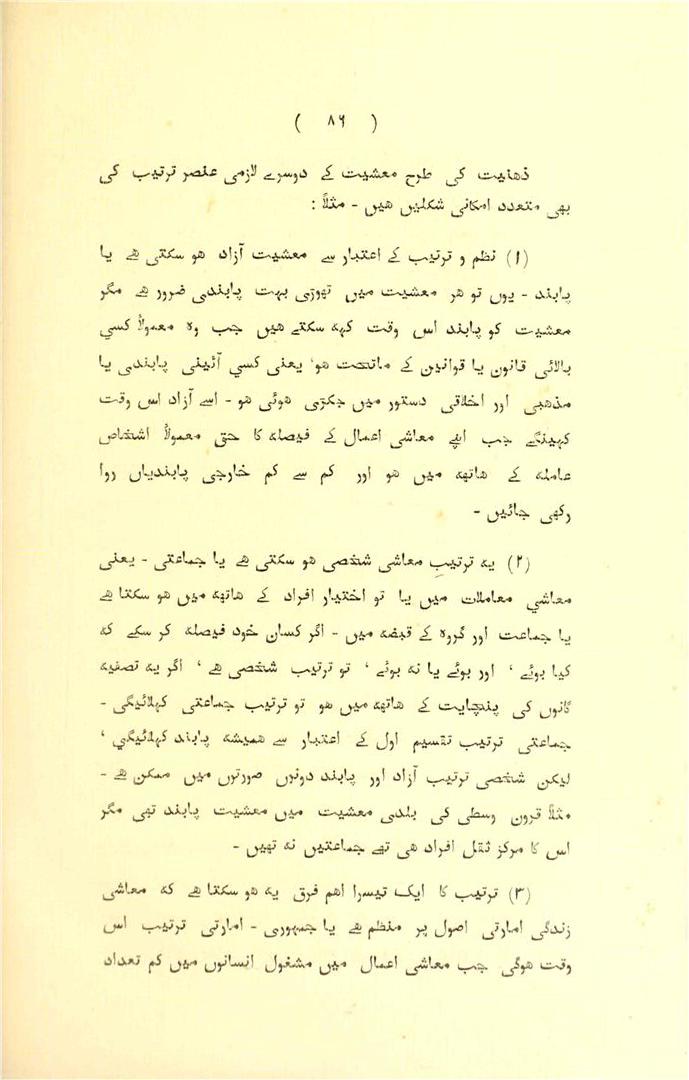 ( ۸۶ )
ذهنیت کی طرح معشیت کے دوسرے لازمی عنصر ترتیب کی
بهی متعدد امکانی شکلیں هیں - مثلاً :
(۱) نظم و ترتیب کے اعتبار سے معشیت آزاد هو سکتی هے یا
پابند - یوں تو هر معشیت میں تهوڑی بہت پابندی ضرور هے مگر
معشیت کو پابند اس وقت کہہ سکتے هیں جب وہ معمولاً کسي
بالائی قانون یا قوانین کے ماتحت هو، یعنی کسي آئینی پابندی یا
مذهبی اور اخلاقی دستور میں جکڑی هوئی هو - اسے آزاد اس وقت
کہینگے جب اپنے معاشی اعمال کے فیصلہ کا حق معمولاً اشخاص
عاملہ کے هاتهہ میں هو اور کم سے کم خارجی پابندیاں روا
رکهی جائیں -
(۲) یہ ترتیبِ معاشی شخصی هو سکتی هے یا جماعتی - یعنی
معاشي معاملات میں یا تو اختیار افراد کے هاتهہ میں هو سکتا هے
یا جماعت اور گروہ کے قبضہ میں - اگر کسان خود فیصلہ کر سکے کہ
کیا بوئے ، اور بوئے یا نہ بوئے ، تو ترتیب شخصی هے ، اگر یہ تصفیہ
گانوں کی پنچایت کے هاتهہ میں هو تو ترتیب جماعتی کہلائیگی -
جماعتی ترتیب تقسیم اول کے اعتبار سے همیشہ پابند کہلائیگي ،
لیکن شخصی ترتیب آزاد اور پابند دونوں صورتوں میں ممکن هے -
مثلاً قرون وسطی کی بلدی معشیت میں معشیت پابند تهی مگر
اس کا مرکز ثقل افراد هی تهے جماعتیں نہ تهیں -
(۳) ترتیب کا ایک تیسرا اهم فرق یہ هو سکتا هے کہ معاشی
زندگی امارتی اصول پر منظم هے یا جمہوری - امارتی ترتیب اس
وقت هوگی جب معاشی اعمال میں مشغول انسانوں میں کم تعداد